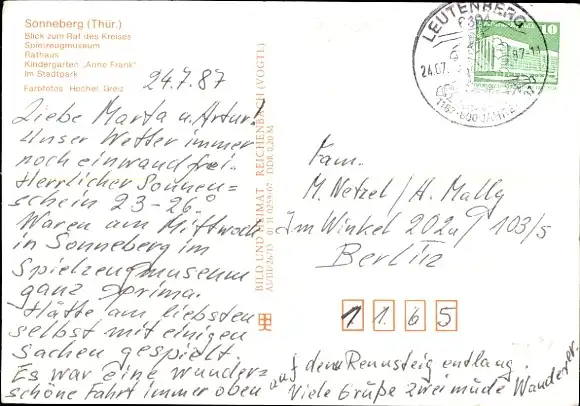 Sonneberg (Thür.)
Blick zum Rat des Kreises
Spielzeugmuseum
Rathaus
Kindergarten „Anne Frank"
im Stadtpark
Farbfotos: Hochel, Greiz
24.7.87
Liebe Marta u. Artur!
Unser Wetter immer
noch einwandfrei.
Herrlicher Sonnen=
schein 23-26°
Waren am Mittwoch
in Sonneberg im
Spielzeugmuseum
ganz prima.
Hätte am liebsten
selbst mit einigen
Sachen gespielt.
Es war eine wunder=
schöne Fahrt immer oben auf dem Rennsteig entlang.
Viele Grüße zwei müde Wanderer.
BILD UND HEIMAT REICHENBACH (VOGTL)
A1/III/26/13 01 11 0259/07 DDR 0,20 M
LEUTENBERG
6304
24.07.87-11
1187-800 JAHRE
10
Fam.
M. Netzel/H. Mally
Im Winkel 202u 103/5
Berlin
1165